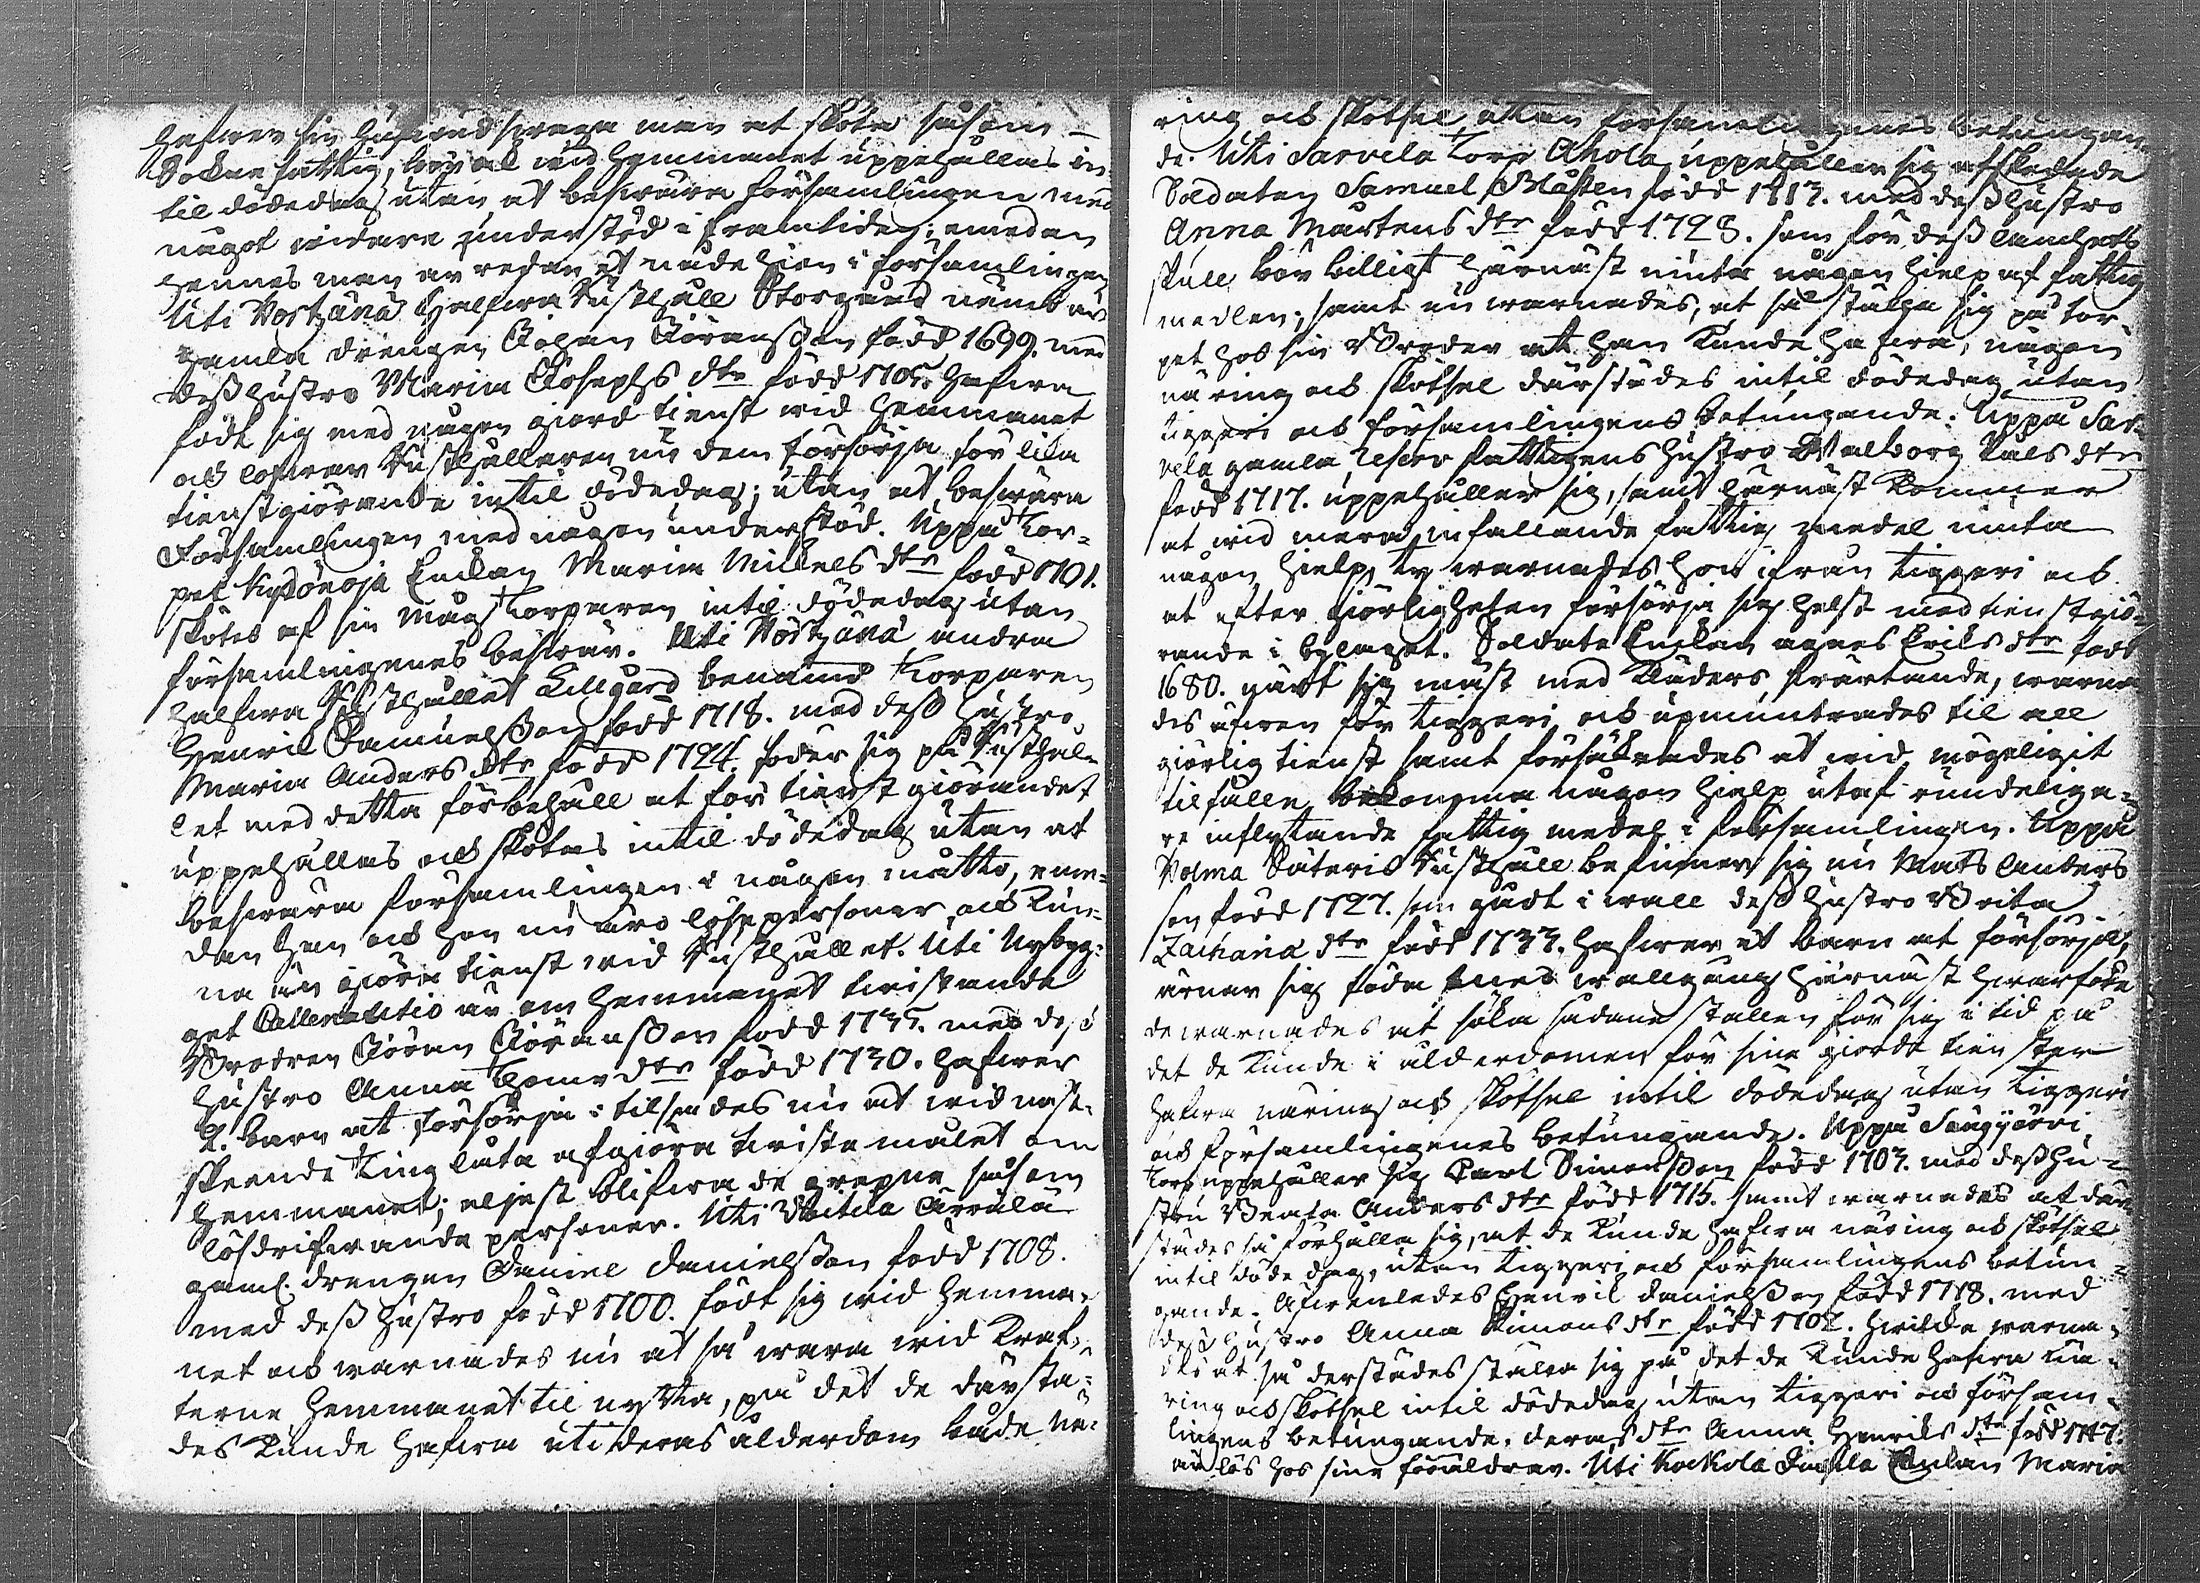 hafwer sin husbonds svaga man at sköta såsom
Sokne fattig, bör ock wid hemmanet uppehållas in
til dödedag utan at beswära församlingen med
något widare understöd i framtiden; emedan
hennes man är redan ett nådehion i församlingen
Uti Hortzänä Halfwa Rusthåll Storgård nämd är
gamla drengen Johan Jöransson född 1699. med
dess hustro Maria Josephs dtr född 1705. hafwa
födt sig med någon giord tienst wid hemmanet
och lofwar Rusthållaren nu dem försörja för lika
tienstgiörande intil dödedag; utan at beswära
Församlingen med någon understöd. Uppå Tor-
pet Kydönoja Enckan Maria Mickels dtr född 1701.
skötes af sin mågs Torparen intil dödedag utan
församlingenes beswär. Uti Hortzänä andra
halfwa Rusthållet Lillgård benämd Torparen
Henric Samuelsson född 1718. med dess hustro
Maria Anders dtr född 1724. föder sig på Rusthål-
let med detta förbehåll at för tienst giörandet
uppehållas och skötas intil dödedag utan at
beswära församlingen i någon måtto, eme-
dan han och hon nu äro löse personer och kun-
na än giöra tienst wid Rusthållet. Uti Nybyg-
get är om hemmanet twistande
Brodren Jöran Jöransson född 1735. med dess
hustro Anna Thoms dtr född 1730. hafwer
2. barn at försörja; tilsades nu at wid näst-
skeende Ting låta afgiöra twistemålet om
hemmanet; eljest blifwa de grepne såsom
lösdrifwande personer. Uti Uitila Ärrälä
gaml. drengen Daniel Danielsson född 1708.
med dess hustro född 1700. födt sig wid hemma-
net och warnades nu at så wara wid kraf-
terne hemmanet til nytta, på det de därstä-
des kunde hafwa uti deras ålderdom både nä-
ring och skötsel utan församlingenes betungan-
de. Uti Sarvela Torp Ahola uppehåller sig afskedade
Soldaten Samuel Måsten född 1713. med dess hustro
Anna Mårtens dtr född 1728. som för dess lamhets
skull bör billigt härnäst niuta någon hielp af fattig
medlen; samt nu warnades, at så ställa sig på tor-
pet hos sin Broder at han kunde hafwa, någon
näring och skötsel därstädes intil dödedag utan
tiggeri och församlingens betungande. Uppå Sar-
vela gamla fattigens hustro Walborg Påls dtr
född 1717. uppehåller sig, samt härnäst kommer
at wid mera infallande fattig medel niuta
någon hielp, ty warnades hon ifrån tiggeri och
at efter giörligheten försörja sig helst med tienstgiö-
rande i bylaget. Soldate Enckan Agnes Eriks dtr född
1680. närt sig mäst med kläders swärtande, warna-
des äfwen för tiggeri och upmuntrades til all
giörlig tienst samt försäkrades at wid mögeligit
tilfälle bekomma någon hielp utaf rundeliga-
re inflytande fattig medel i församlingen. Uppå
Holma Säteris Rusthåll befinner sig nu Mats Anders
son född 1727. som gådt i wall dess hustro Brita
Zacharia dtr född 1733. hafwer et barn at försörja,
ärnar sig föda med wallgång härnäst hwarföre
de warnades at söka sådane ställen för sig i tid på
det de kunde i ålderdomen för sine giorde tienster
hafwa näring och skötsel intil dödedag utan tiggeri
och församlingenes betungande. Uppå Säxjärvi
Torp uppehåller sig Carl Simonsson född 1703. med dess hu-
stru Beata Anders dtr född 1715. samt warnades at där-
städes så förhålla sig, at de kunde hafwa näring och skötsel
intil döde dag, utan tiggeri och församlingens betun-
gande. Äfwenledes Henric Danielsson född 1718. med
dess hustro Anna Simons dtr född 1702. hwilcka warna-
des at så derstädes ställa sig på det de kunde hafwa nä-
ring och skötsel intil dödedag utan tiggeri och försam-
lingens betungande. deras dtr Anna Henriks dtr född 1747.
är lös hos sine föräldrar. Uti Kockola Enckan Maria